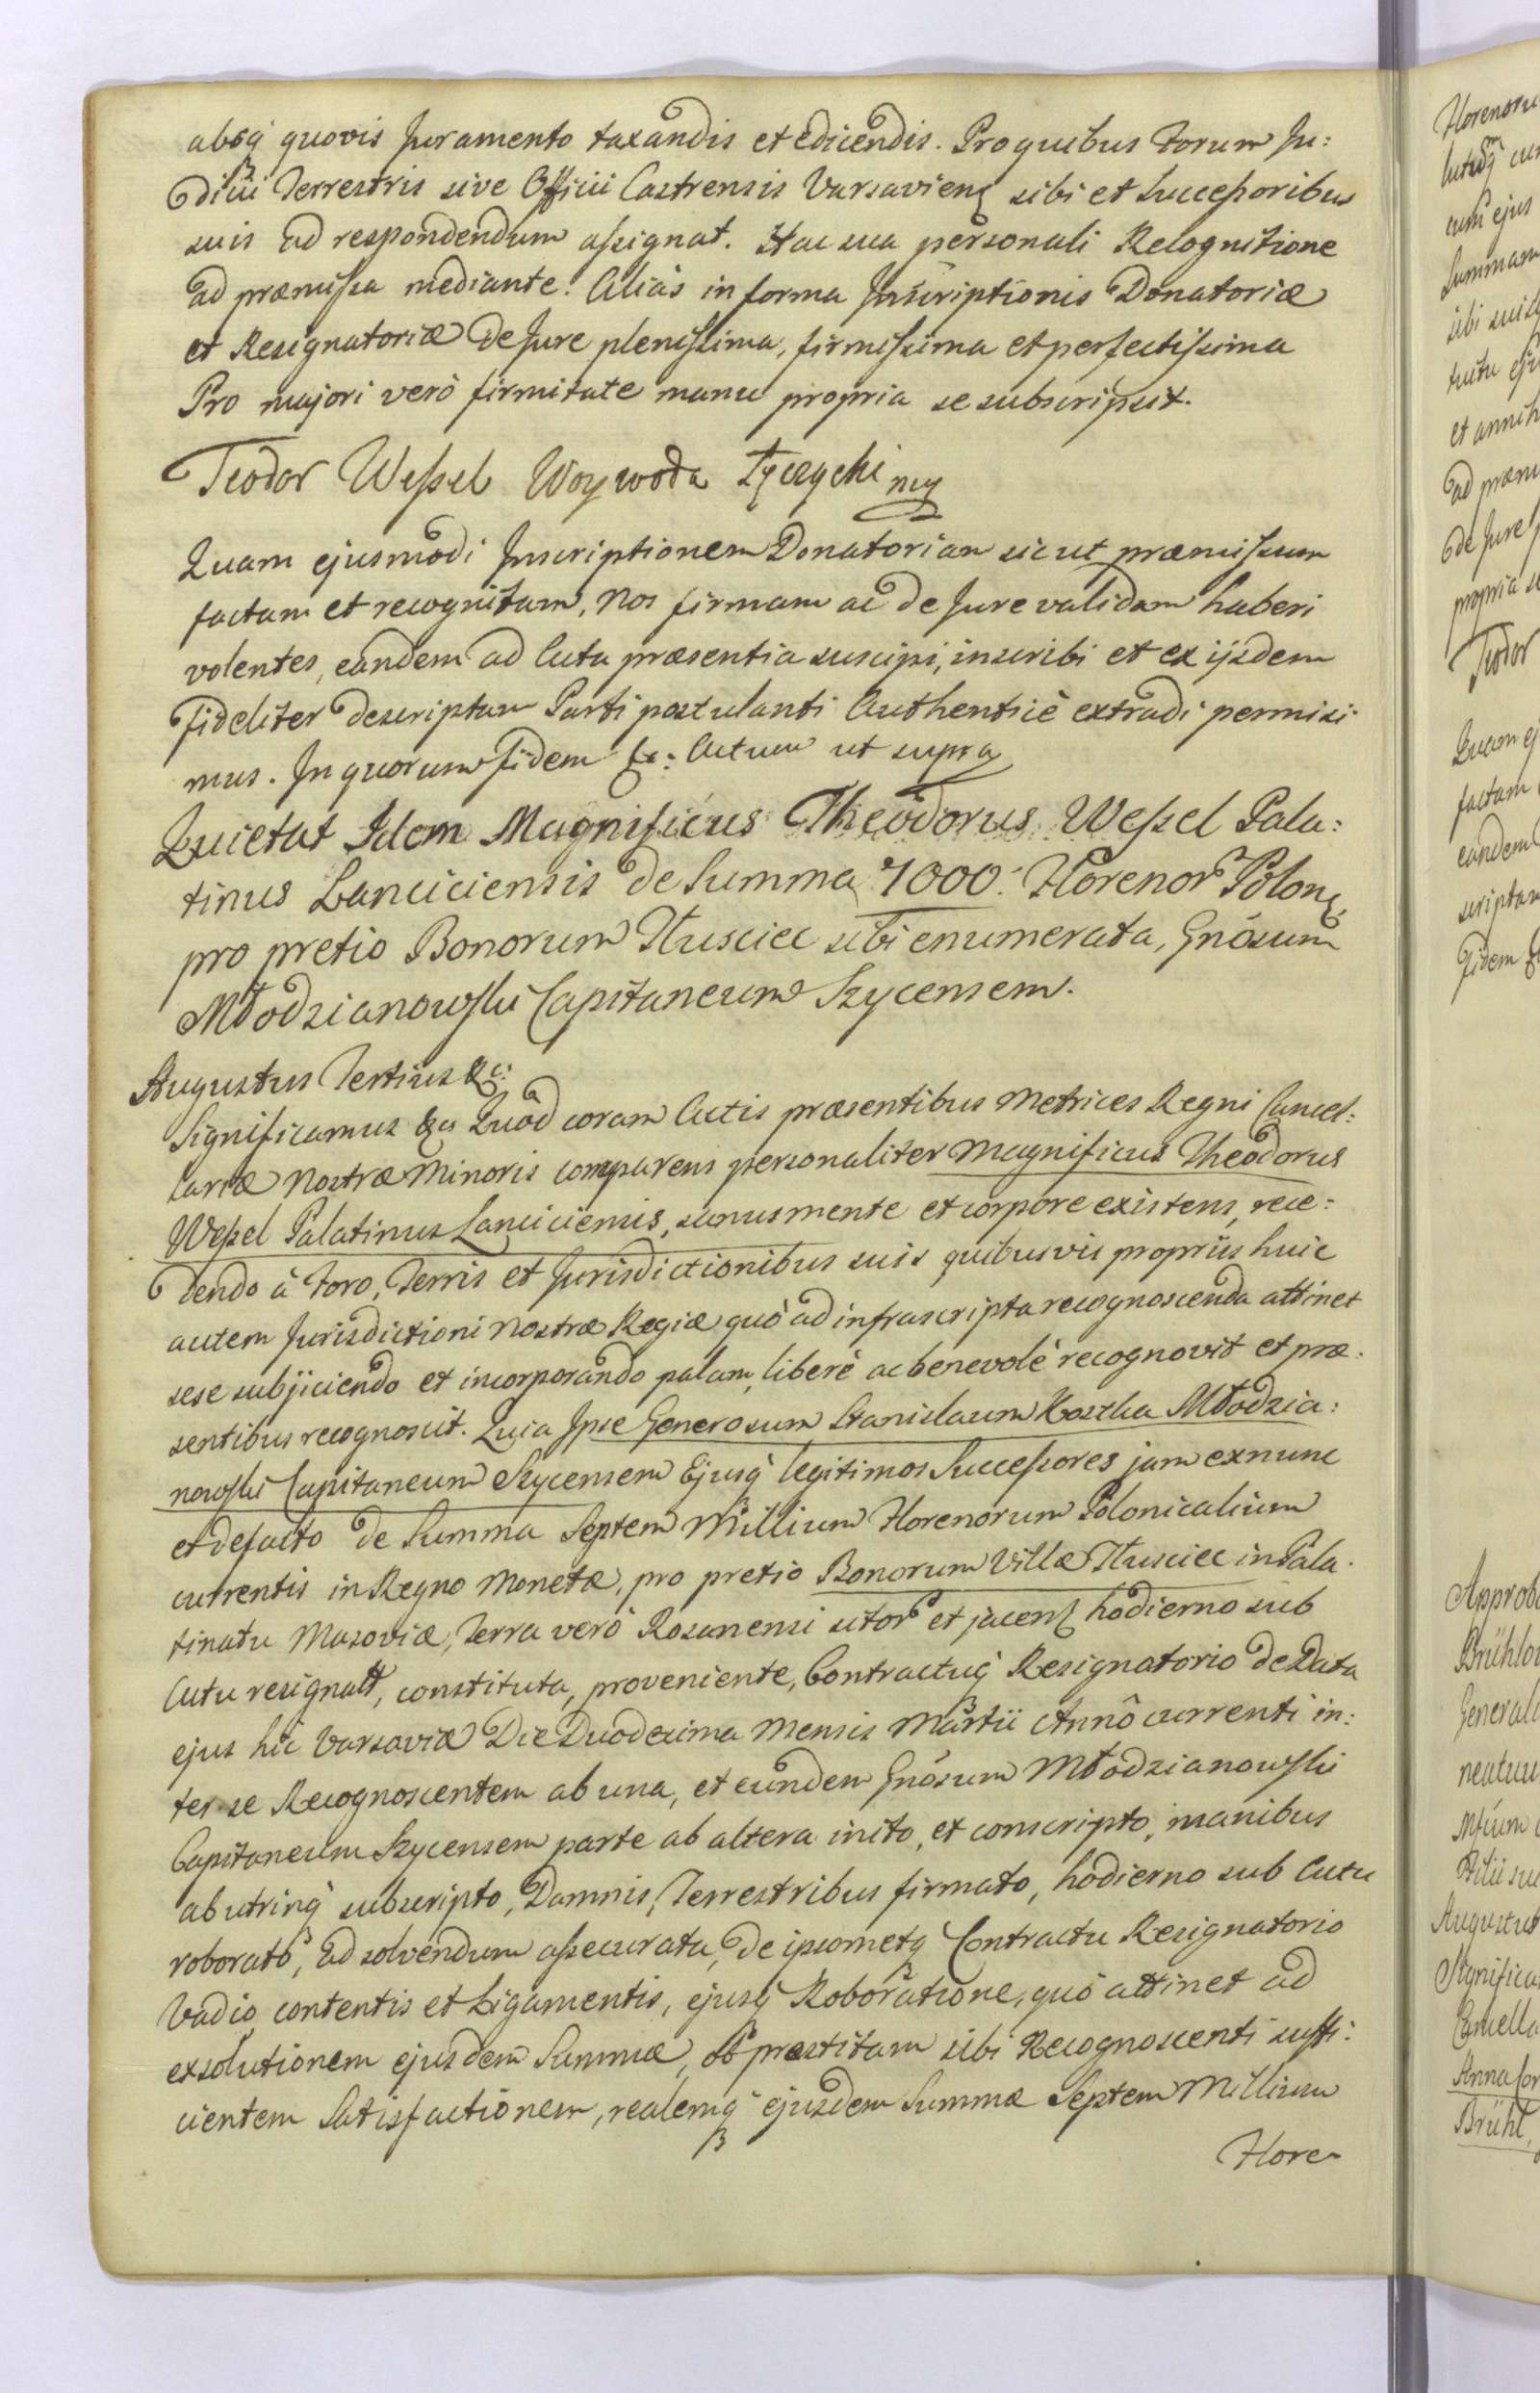 absq́ quovis Juramento taxandis et edicendis. Pro quibus Forum Ju:
dicii Terrestris sive Officii Castrensis Varsavien̄ sibi et Successoribus
suis ad respondendum assignat. Hac sua personali Recognitione
ad præmissa mediante. Aliàs in forma Inscriptionis Donatoriæ
et Resignatoriæ de Jure plenissima, firmissima et perfectissima
Pro majori verò firmitate manu propria se subscripsit.
Teodor Wessel Woywoda Łęczycki mp
Quam ejusmodi Inscriptionem Donatoriam sicut præmissum
factam et recognitam, Nos firmam ac de Jure validam haberi
volentes, eandem ad Acta præsentia suscipi, inscribi et ex ijsdem
fideliter descriptam Parti postulanti Authenticè extradi permisi
mus. In quorum fidem &: Actum ut supra
Quietat Idem Magnificus Theodorus Wessel Pala:
tinus Lanciciensis de Summa 7000. Florenor Polon,
pro pretio Bonorum Tłusciec sibi enumerata, Gnōsum
Młodzianowski Capitaneum Szycensem.
Augustus Tertius &c:
Significamus &c Quòd coram Actis præsentibus Metrices Regni Cancel:
lariæ Nostræ Minoris comparens personaliter Magnificus Theodorus
Wessel Palatinus Lanciciensis, sanus mente et corpore existens, rece:
dendo à Foro, Terris et Jurisdictionibus suis quibusvis propriis huic
autem Jurisdictioni Nostræ Regiæ quò ad infrascripta recognoscenda attinet
sese subjiciendo et incorporando palam, liberè ac benevolè recognovit et præ:
sentibus recognoscit. Quia Ipse Generosum Stanislaum Kostka Młodzia:
nowski Capitaneum Szycensem Ejusq́ legitimos Successores jam exnunc
et defacto de Summa Septem Millium Florenorum Polonicalium
currentis in Regno Monetæ, pro pretio Bonorum Villæ Tłusciec in Pala:
tinatu Masoviæ, Terra verò Rosanensi sitor et jacen hodierno sub
Actu resignatt, constituta, proveniente, Contractuq́ Resignatorio de Data
ejus hic Varsaviæ Die Duodecima Mensis Martii Annô currenti in:
ter se Recognoscentem ab una, et eundem Gnōsum Młodzianowski
Capitaneum Szycensem parte ab altera inito, et conscripto, manibus
ab utrinq́ subscripto, Damnis Terrestribus firmato, hodierno sub Actu
roborato, ad solvendum assecurata, de ipsometq́ Contractu Resignatorio
Vadio, contentis et Ligamentis, ejusq́ Roboratione, quò attinet ad
exsolutionem ejusdem Summæ, ob præstitam sibi Recognoscenti suffi:
cientem Satisfactionem, realemq́ ejusdem Summæ Septem Millium
Flore-